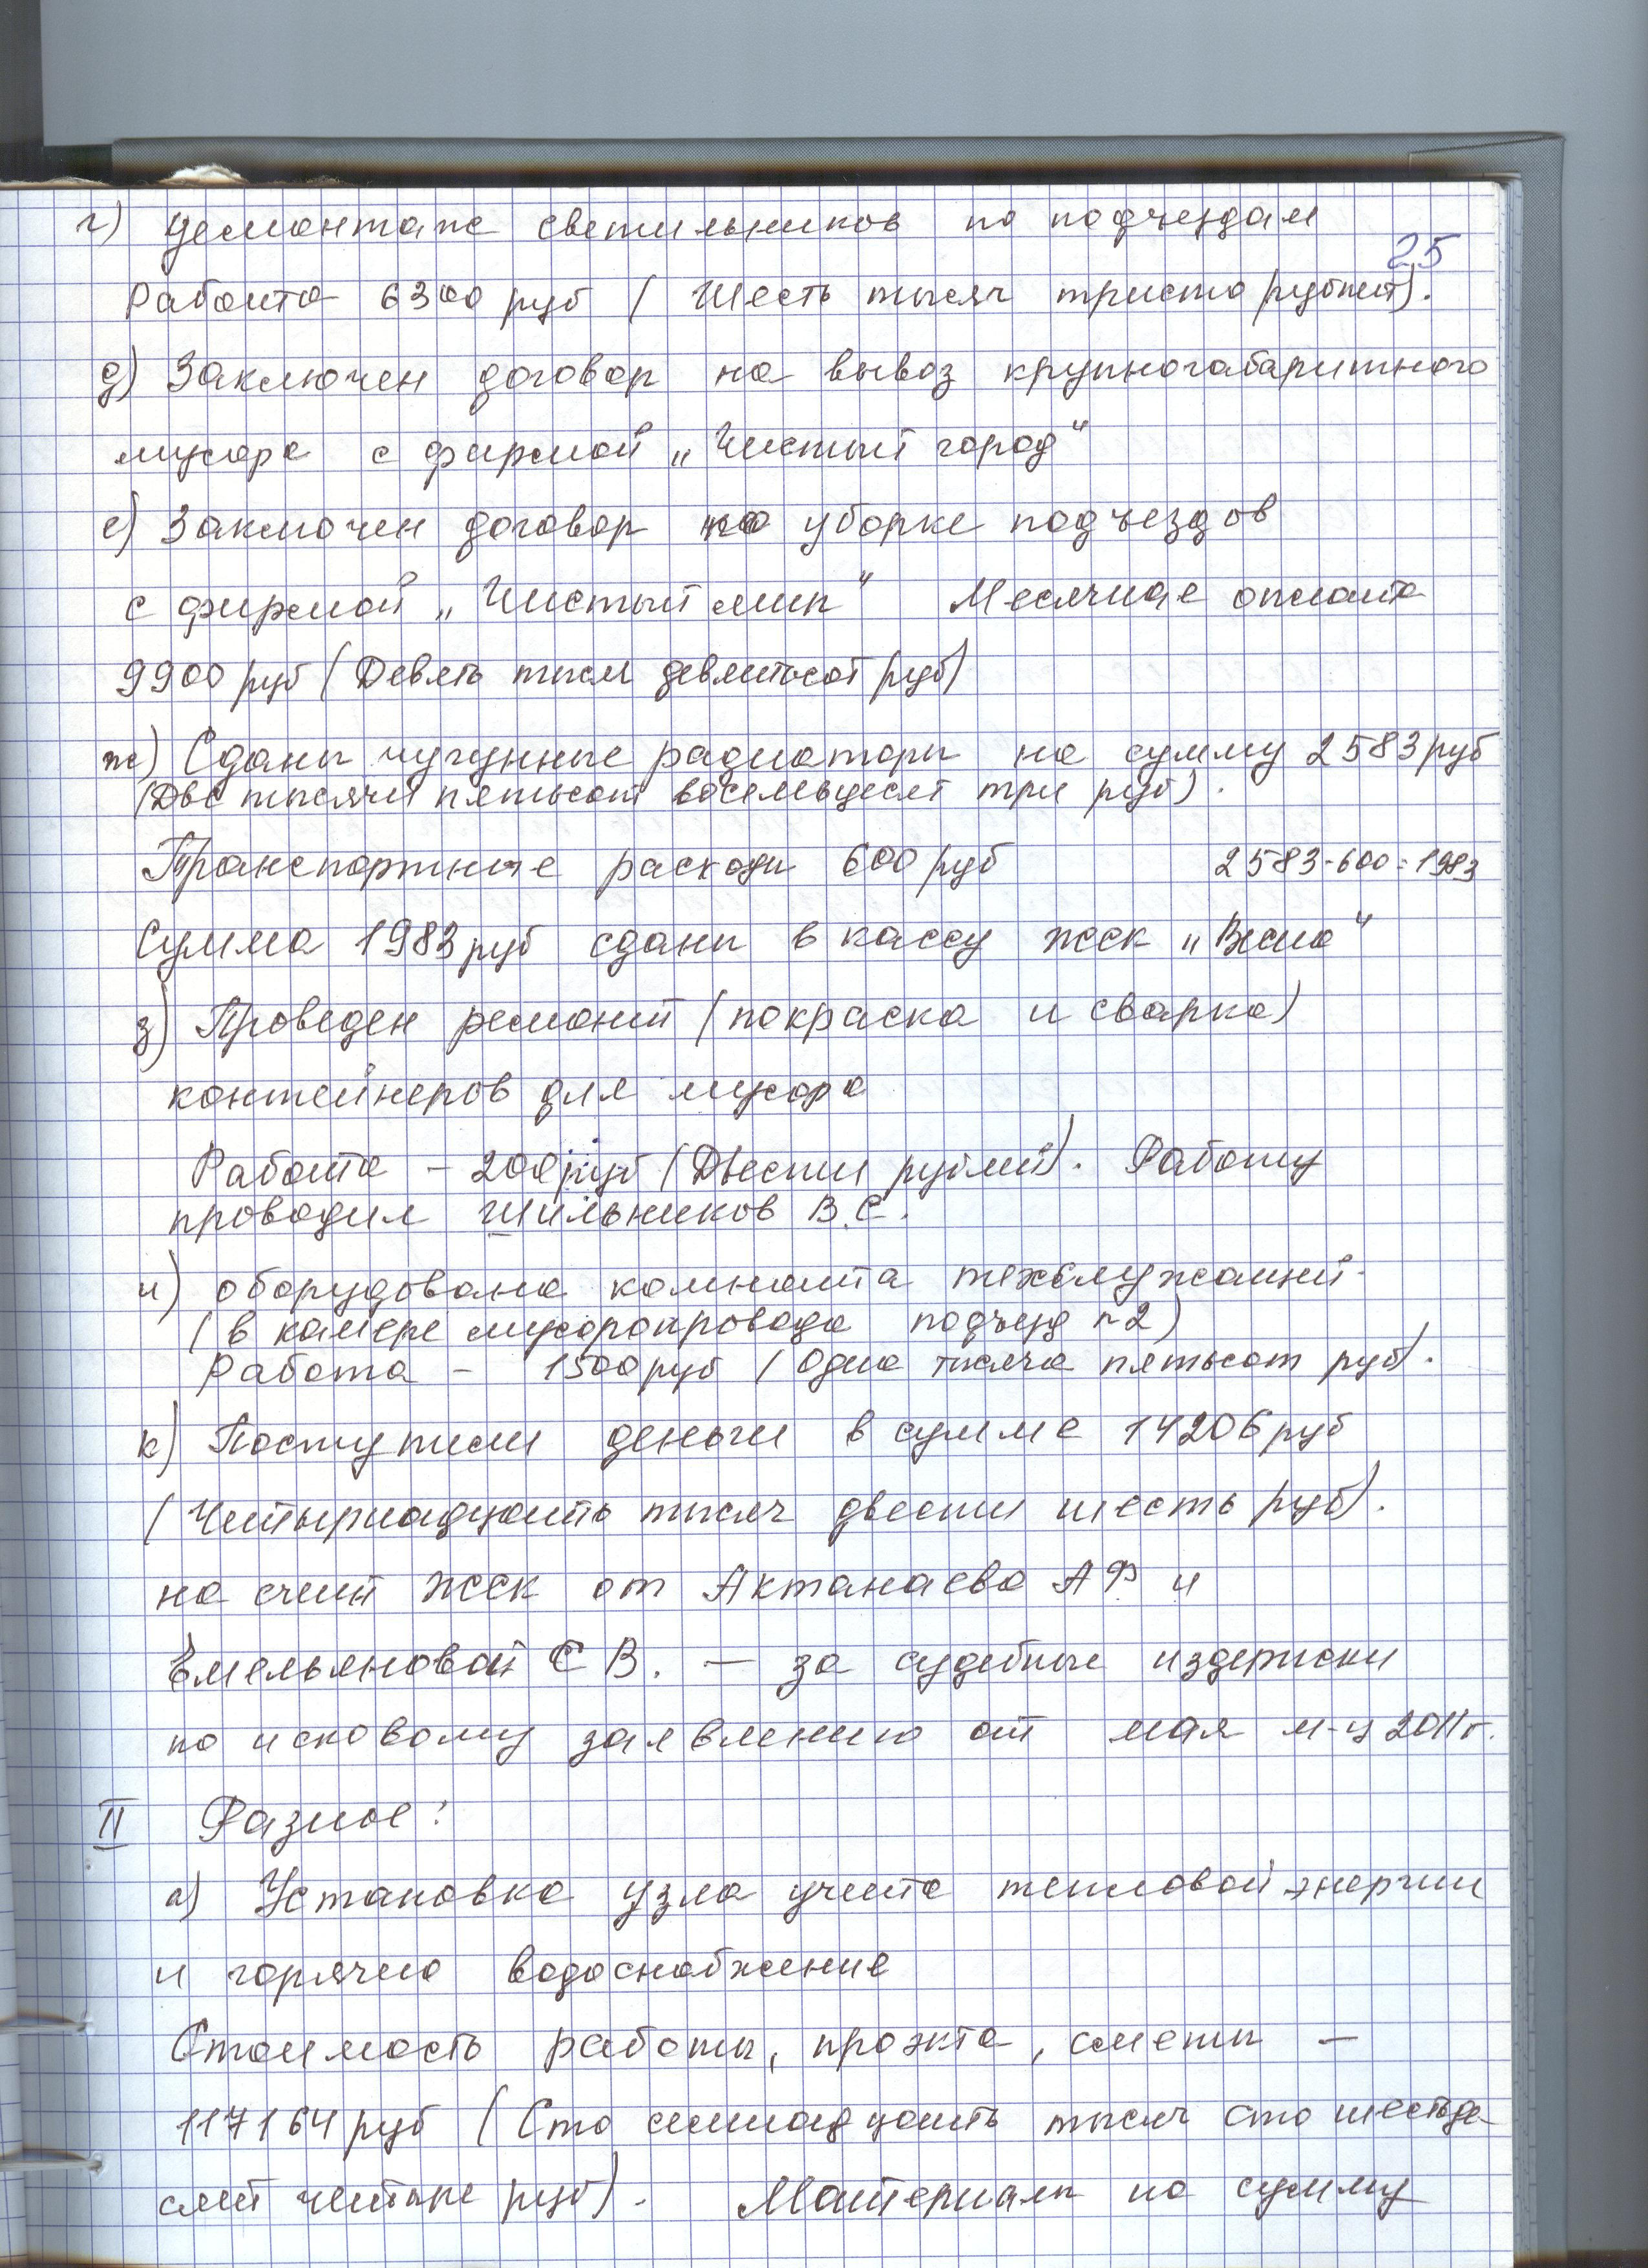 г) демонтаж светильников по подъездам
25
Работа 6300 руб (Шесть тысяч триста рублей).
д) Заключен договор на вывоз крупногабаритного
мусора с фирмой „Чистый город"
е) Заключен договор по уборке подъездов
с фирмой „Чистый мир" Месячная оплата
9900 руб (Девять тысяч девятьсот руб)
ж) Сданы чугунные радиаторы на сумму 2583 руб
(Две тысячи пятьсот восемьдесят три руб).
Транспортные расходы 600 руб 2583-600=1983
Сумма 1983 руб сданы в кассу жск „Весна"
з) Проведен ремонт (покраска и сварка)
контейнеров для мусора
Работа – 200 руб (Двести рублей). Работу
проводил Шильников В.С.
и) оборудована комната техслужащий
(в камере мусоропровода подъезд n2)
Работа – 1500 руб (Одна тысяча пятьсот руб).
к) Поступили деньги в сумме 14206 руб
(Четырнадцать тысяч двести шесть руб).
на счет ЖСК от Актанаева АФ и
Емельяновой С В. — за судебные издержки
по исковому заявлению от мая м-ц 2011г.
II Разное:
а) Установка узла учета тепловой энергии
и горячею водоснабжение
Стоимость работы, проэкта, сметы —
117164 руб (Сто семнадцать тысяч сто шестьде-
сят четыре руб). Материалы на сумму